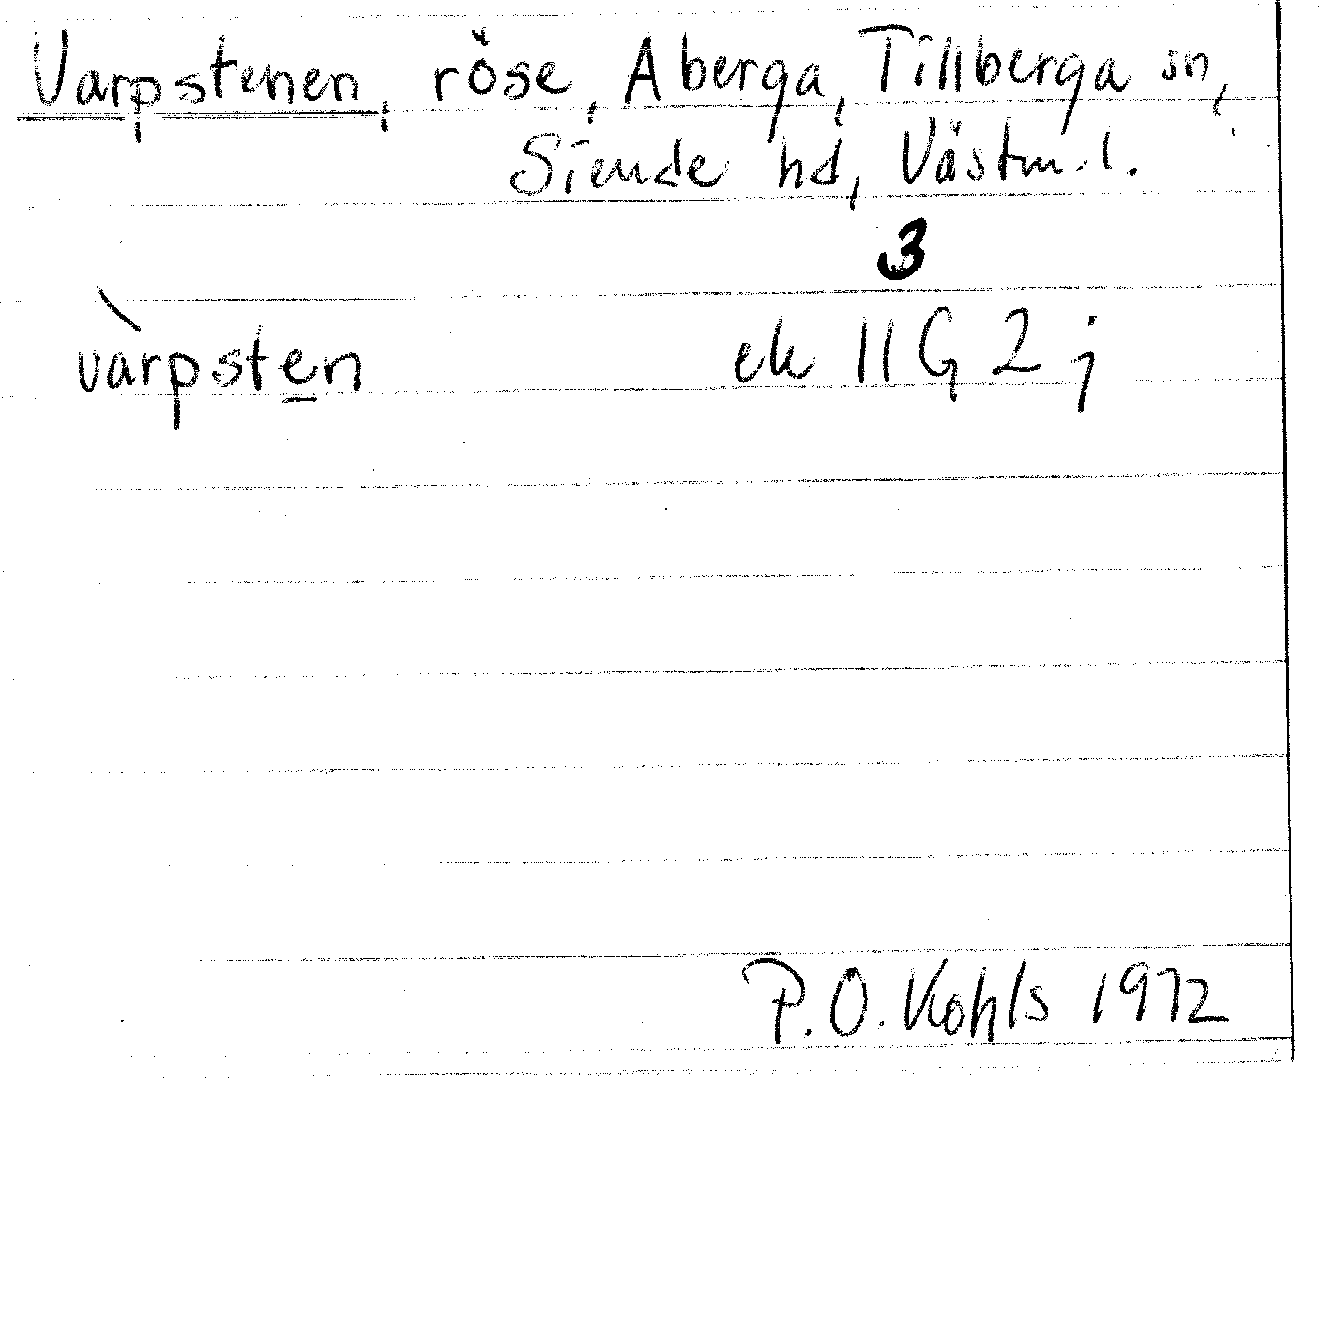 Varpstenen, röse, Aberga, Tillberga sn,
Siende hd, Västm.l.
3
vàrpsten ek 11G 2j
P.O. Kohls 1972